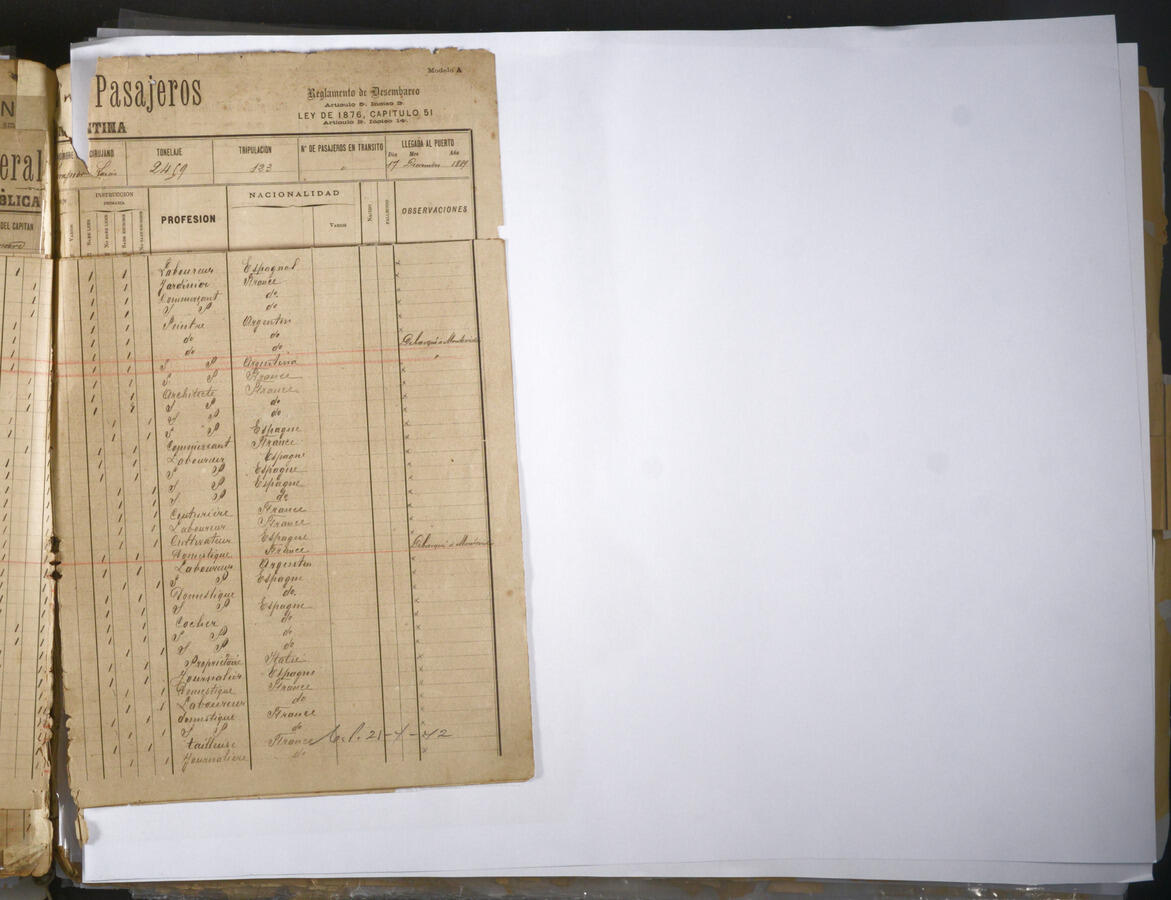 Modelo A
Pasajeros
Reglamento de Desembarco
Articulo 9. Inciso 2.
LEY DE 1876, CAPITULO 51
NTINA
N
eral
BLICA
DEL CAPITAN
CIRUJANO
TONELAJE
TRIPULACIÓN
N° DE PASAJEROS EN TRANSITO
LLEGADA AL PUERTO
Dia Mes Año
2469
123
17 Decembre 1889
INSTRUCCION
PRIMARIA
PROFESION
NACIONALIDAD
VARIOS
OBSERVACIONES
Laboureur Espagnol
Jardinier France
Commerçant do
S P do
Peintre Argentin
do do
do do Débarqué à Montevideo
S P Argentina "
S P France
Architecte France
S P do
S P do
S P Espagne
Commercant France
Laboureur Espagne
S P Espagne
S P Espagne
S P do
Couturière France
Laboureur France
Cultivateur Espagne
Domestique France Débarqué à Montevideo
Laboureur Argentin
S P Espagne
Domestique do.
S P Espagne
Cocher do
S P do
S P do
Proprietaire Italie
Journalier Espagne
Domestique France
Laboureur do
domestique France
S P do
tailleuse France
Journaliere do